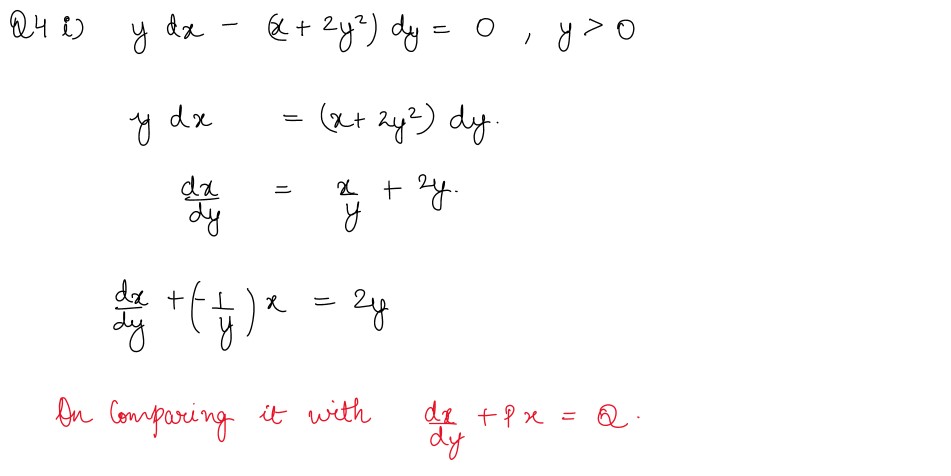 Q4 i) y dx - (x + 2y²) dy = 0 , y > 0
y dx = (x + 2y²) dy.
dx/dy = x/y + 2y.
dx/dy + (-1/y) x = 2y
On Comparing it with dx/dy + Px = Q.